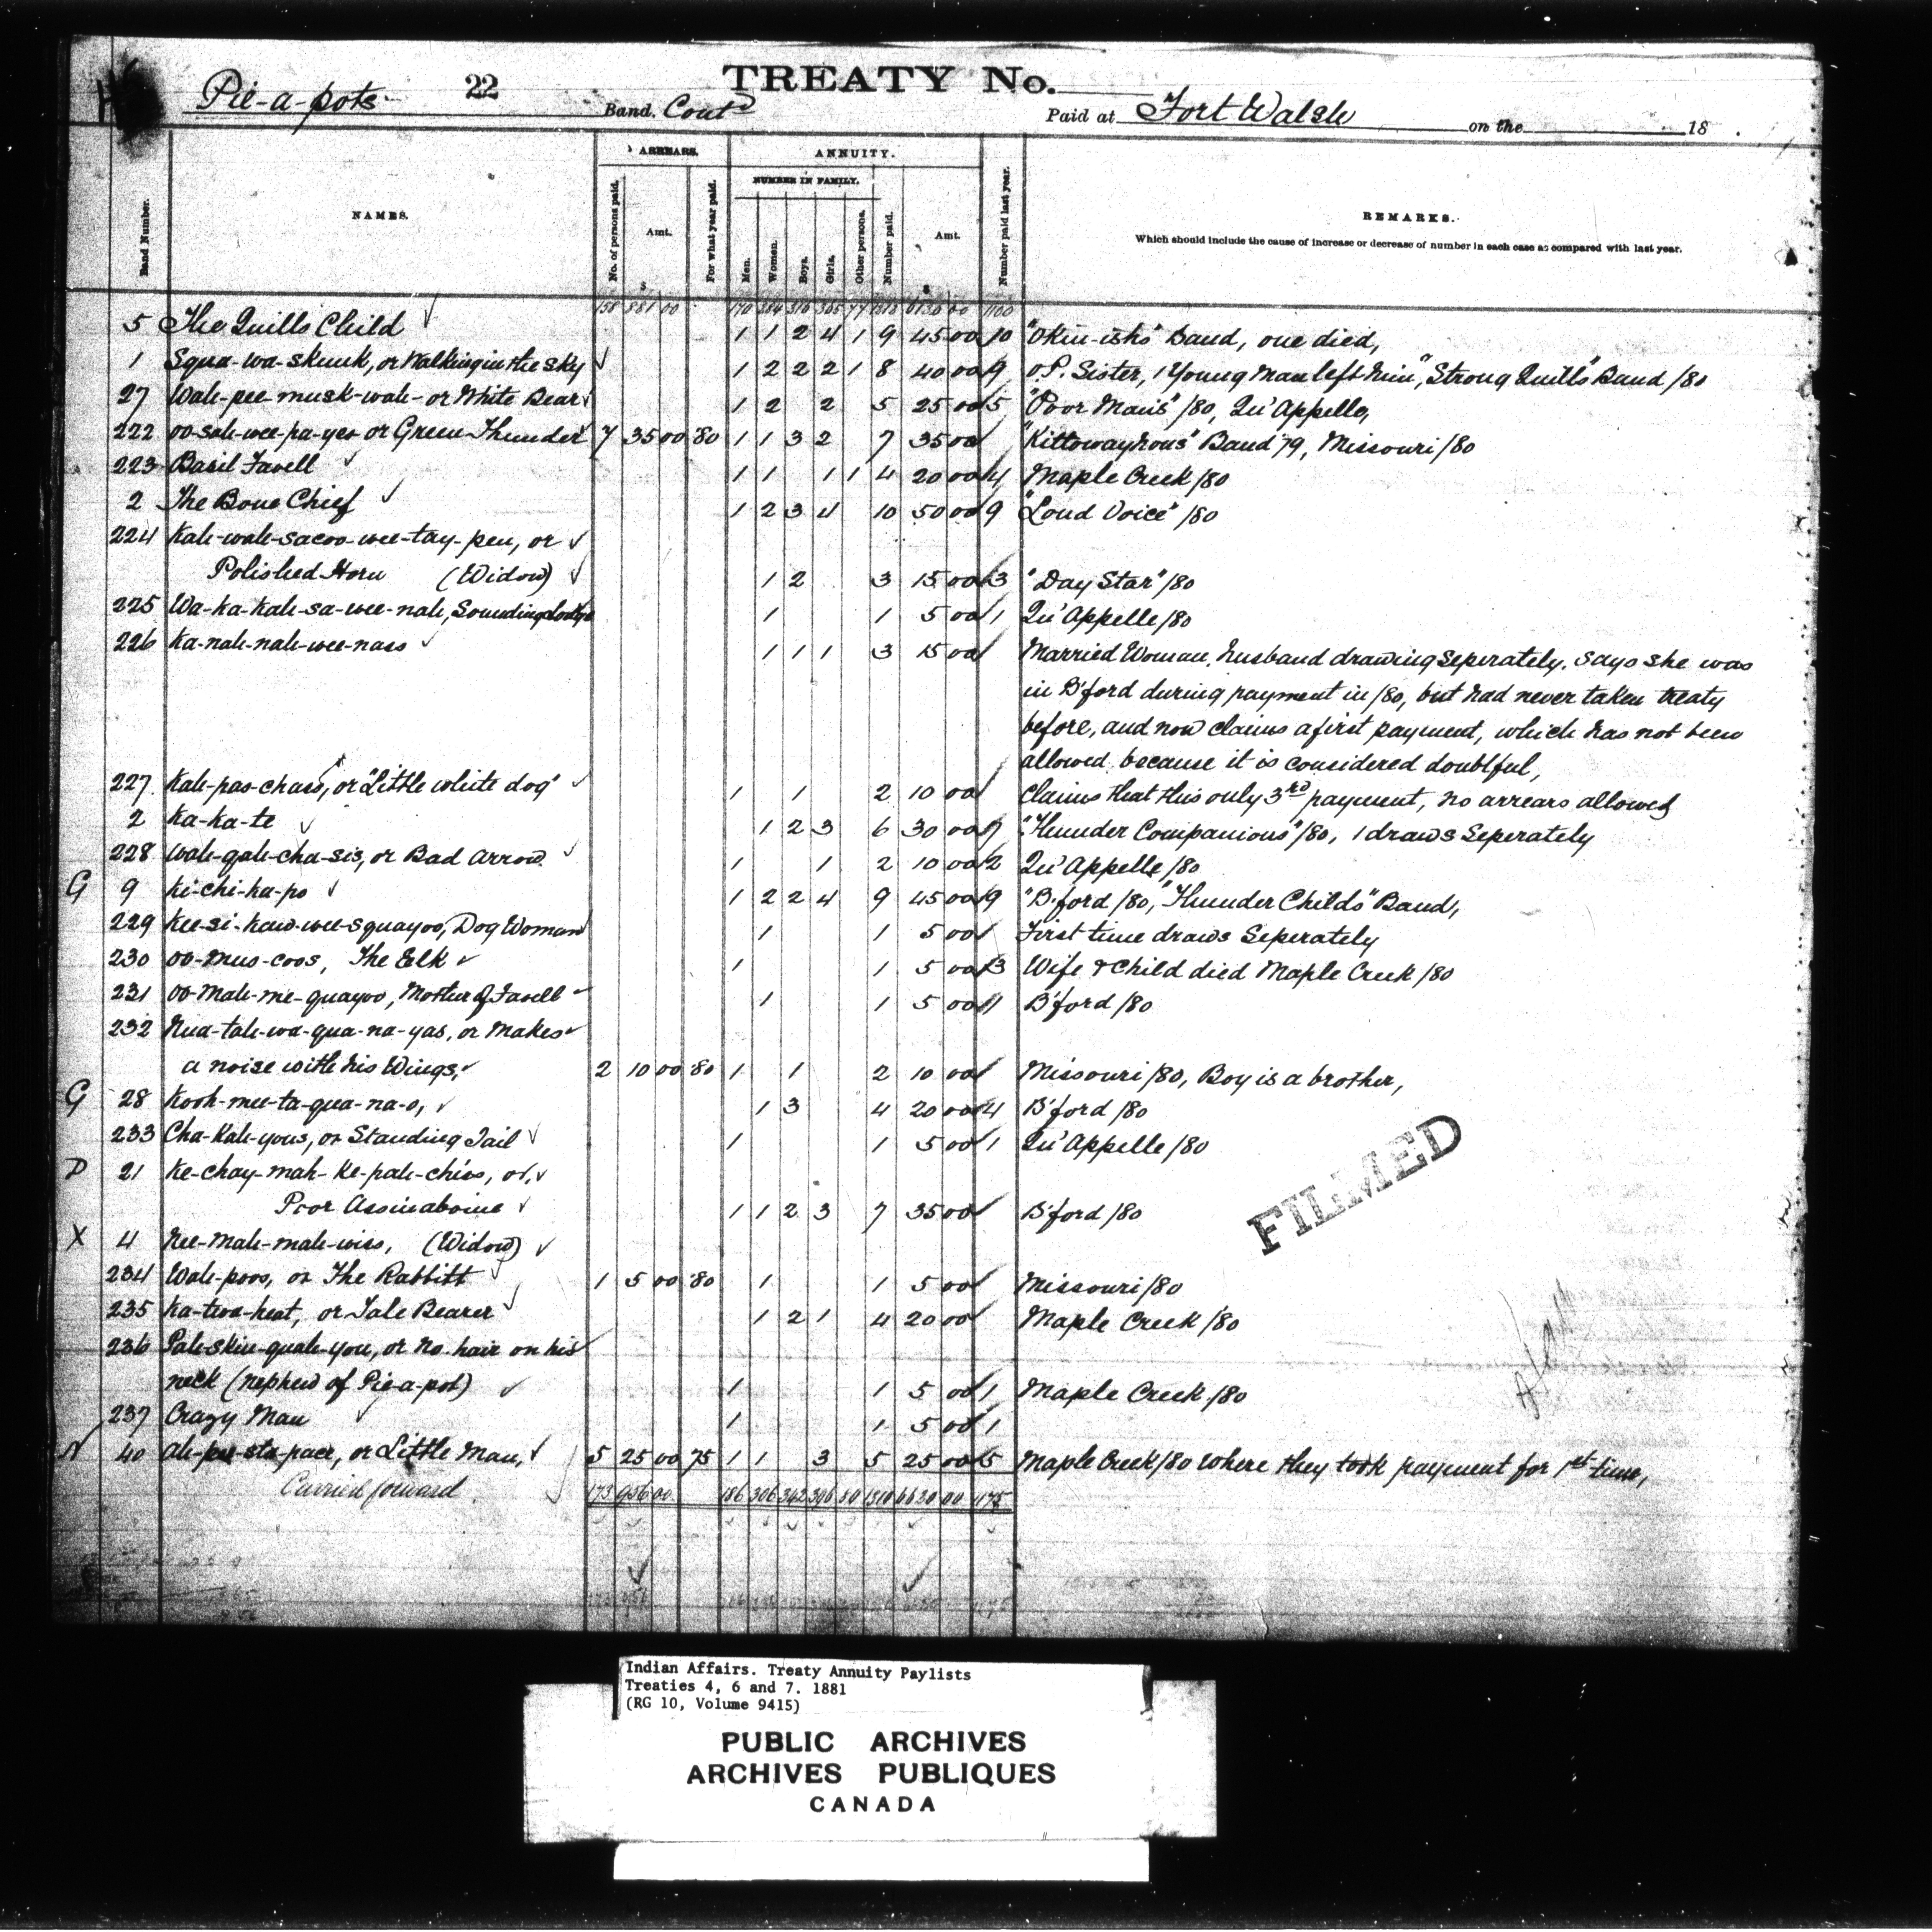 TREATY No.
22
Pie-a-pots Band. Contd Paid at Fort Walsh on the 18 .
ARREARS. ANNUITY.
NUMBER IN FAMILY.
Band Number. NAMES. No. of persons paid. Amt. For what year paid. Men. Women. Boys. Girls. Other persons. Number paid. Amt. Number paid last year. REMARKS.
Which should include the cause of increase or decrease of number in each case as compared with last year.
$ $
158 881 00
5 The Quills Child 1 1 2 4 1 9 45 00 10 "Okin-ishs" Band, one died,
1 Squa-wa-skunk, or Walking in the Sky 1 2 2 2 1 8 40 00 9 O.P. Sister, 1 Young Man left him, "Strong Quills" Band /80
27 Wah-pee-musk-wah- or White Bear 1 2 2 5 25 00 5 "Poor Man's" /80, Qu'Appelle,
222 oo-sah-wee-pa-yes or Green Thunder 7 35 00 80 1 1 3 2 7 35 00 "Kittowayhous" Band '79, Missouri /80
223 Basil Favell 1 1 1 1 4 20 00 4 Maple Creek /80
2 The Bone Chief 1 2 3 4 10 50 00 9 "Loud Voice" /80
224 Kah-wah-sacoo-wee-tay-pen, or
Polished Horn (Widow) 1 2 3 15 00 3 "Day Star" /80
225 Wa-ka-kah-sa-wee-nah, Sounding Lodge 1 1 5 00 1 Qu'Appelle /80
226 Ka-nah-nah-wee-nass 1 1 1 3 15 00 Married Woman, husband drawing Seperately. Says she was
in B'ford during payment in /80, but had never taken treaty
before, and now claims a first payment, which has not been
allowed because it is considered doubtful,
227 Kah-pas-chass, or "Little white dog" 1 1 2 10 00 Claims that this only 3rd payment, no arrears allowed
2 Ka-ka-te 1 2 3 6 30 00 7 "Thunder Companions" /80, 1 draws Seperately
228 Wah-gah-cha-sis, or Bad Arrow 1 1 2 10 00 2 Qu'Appelle /80
G 9 Ki-chi-ka-po 1 2 2 4 9 45 00 9 "B'ford /80, "Thunder Childs" Band,
229 Kee-si-kaw-wee-squayoo, Dog Woman 1 1 5 00 First time draws Seperately
230 oo-mus-coos, The Elk 1 1 5 00 3 Wife & Child died Maple Creek /80
231 oo-mah-me-quayoo, Mother of Favell 1 1 5 00 1 B'ford /80
232 Nua-tah-wa-qua-na-yas, or Makes
a noise with his Wings, 2 10 00 80 1 1 2 10 00 Missouri /80, Boy is a brother,
G 28 Kooh-mee-ta-qua-na-o, 1 3 4 20 00 4 B'ford /80
233 Cha-Kah-yous, or Standing Tail 1 1 5 00 1 Qu'Appelle /80
P 21 Ke-chay-mah-ke-pah-chiss, or,
Poor Assinaboine 1 1 2 3 7 35 00 B'ford /80
X 4 Nee-mah-mah-wiss, (Widow)
234 Wah-poos, or The Rabbitt 1 5 00 80 1 1 5 00 Missouri /80
235 Ka-twa-heat, or Tale Bearer 1 2 1 4 20 00 Maple Creek /80
236 Pah-skin-quah-you, or no hair on his
neck (nephew of Pie-a-pot) 1 1 5 00 1 Maple Creek /80
237 Crazy Man 1 1 5 00 1
N 40 Ah-pee-sta-paec, or Little Man, 5 25 00 75 1 1 3 5 25 00 5 Maple Creek /80 where they took payment for 1st time,
Carried forward 173 956 00 186 306 342 396 80 1310 6630 00 1175
FILMED
Indian Affairs. Treaty Annuity Paylists
Treaties 4, 6 and 7. 1881
(RG 10, Volume 9415)
PUBLIC ARCHIVES
ARCHIVES PUBLIQUES
CANADA